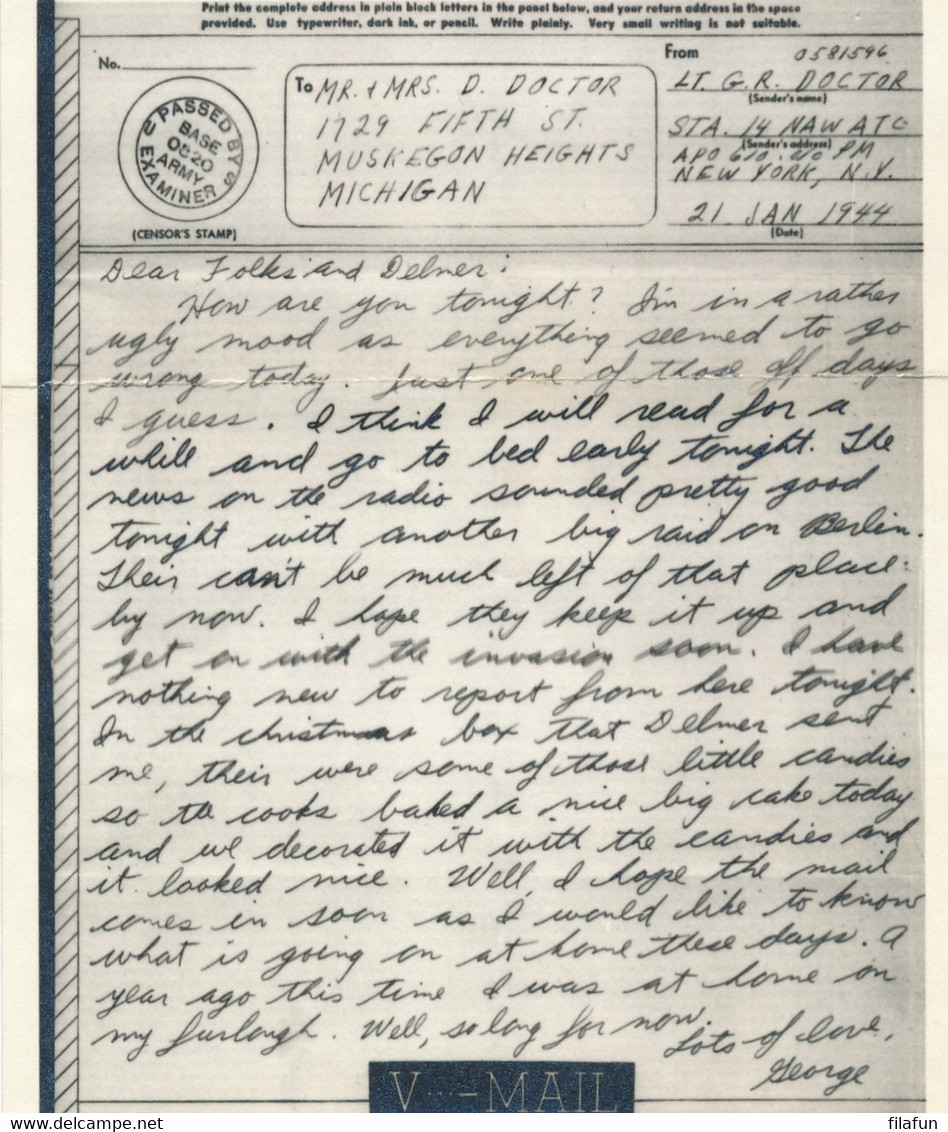 Print the complete address in plain block letters in the panel below, and your return address in the space
provided. Use typewriter, dark ink, or pencil. Write plainly. Very small writing is not suitable.
No.
PASSED BY U S
ARMY EXAMINER
BASE
0820
To MR. & MRS. D. DOCTOR
1729 FIFTH ST.
MUSKEGON HEIGHTS
MICHIGAN
From
0581596
LT. G.R. DOCTOR
(Sender's name)
STA. 14 NAW ATC
(Sender's address)
APO 610 PM
NEW YORK, N.Y.
21 JAN 1944
(Date)
(CENSOR'S STAMP)
Dear Folks and Delmer:
How are you tonight? I'm in a rather
ugly mood as everything seemed to go
wrong today. Just one of those off days
I guess. I think I will read for a
while and go to bed early tonight. The
news on the radio sounded pretty good
tonight with another big raid on Berlin.
Their can't be much left of that place
by now. I hope they keep it up and
get on with the invasion soon. I have
nothing new to report from here tonight.
In the christmas box that Delmer sent
me, their were some of those little candies
so the cooks baked a nice big cake today
and we decorated it with the candies and
it looked nice. Well, I hope the mail
comes in soon as I would like to know
what is going on at home these days. A
year ago this time I was at home on
my furlough. Well, so long for now.
Lots of love,
George
V···-MAIL
www.delcampe.net
filafun